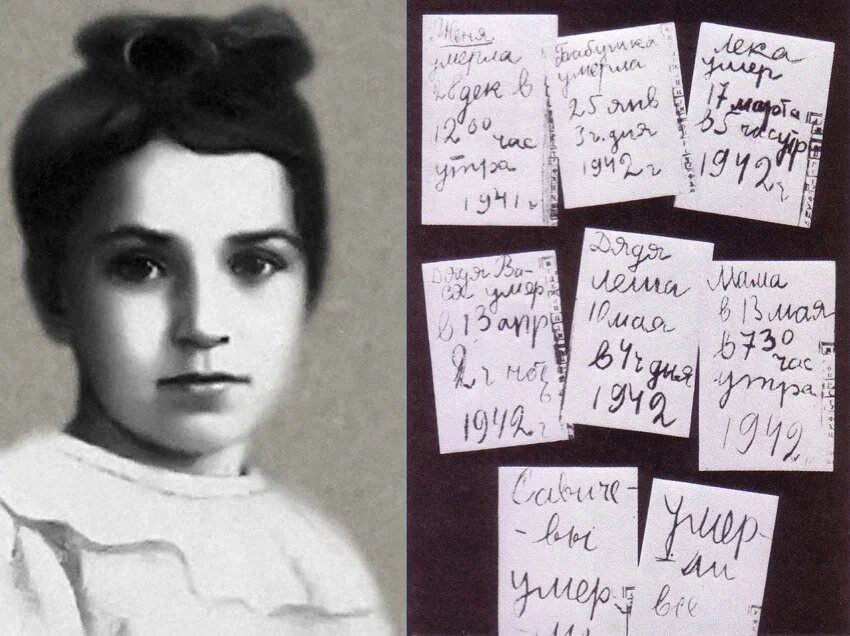 Женя
умерла
28 дек в
12 00 час
утра
1941 г
Бабушка
умерла
25 янв
3 ч. дня
1942 г
Лека
умер
17 марта
в 5 час утр
1942 г
Дядя Ва-
ся умер
в 13 апр
2 ч
1942 г
Дядя
Леша
10 мая
в 4 ч дня
1942
Мама
в 13 мая
в 7 30
час
утра
1942 г
Савиче-
-вы
умер
умер-
-ли
все